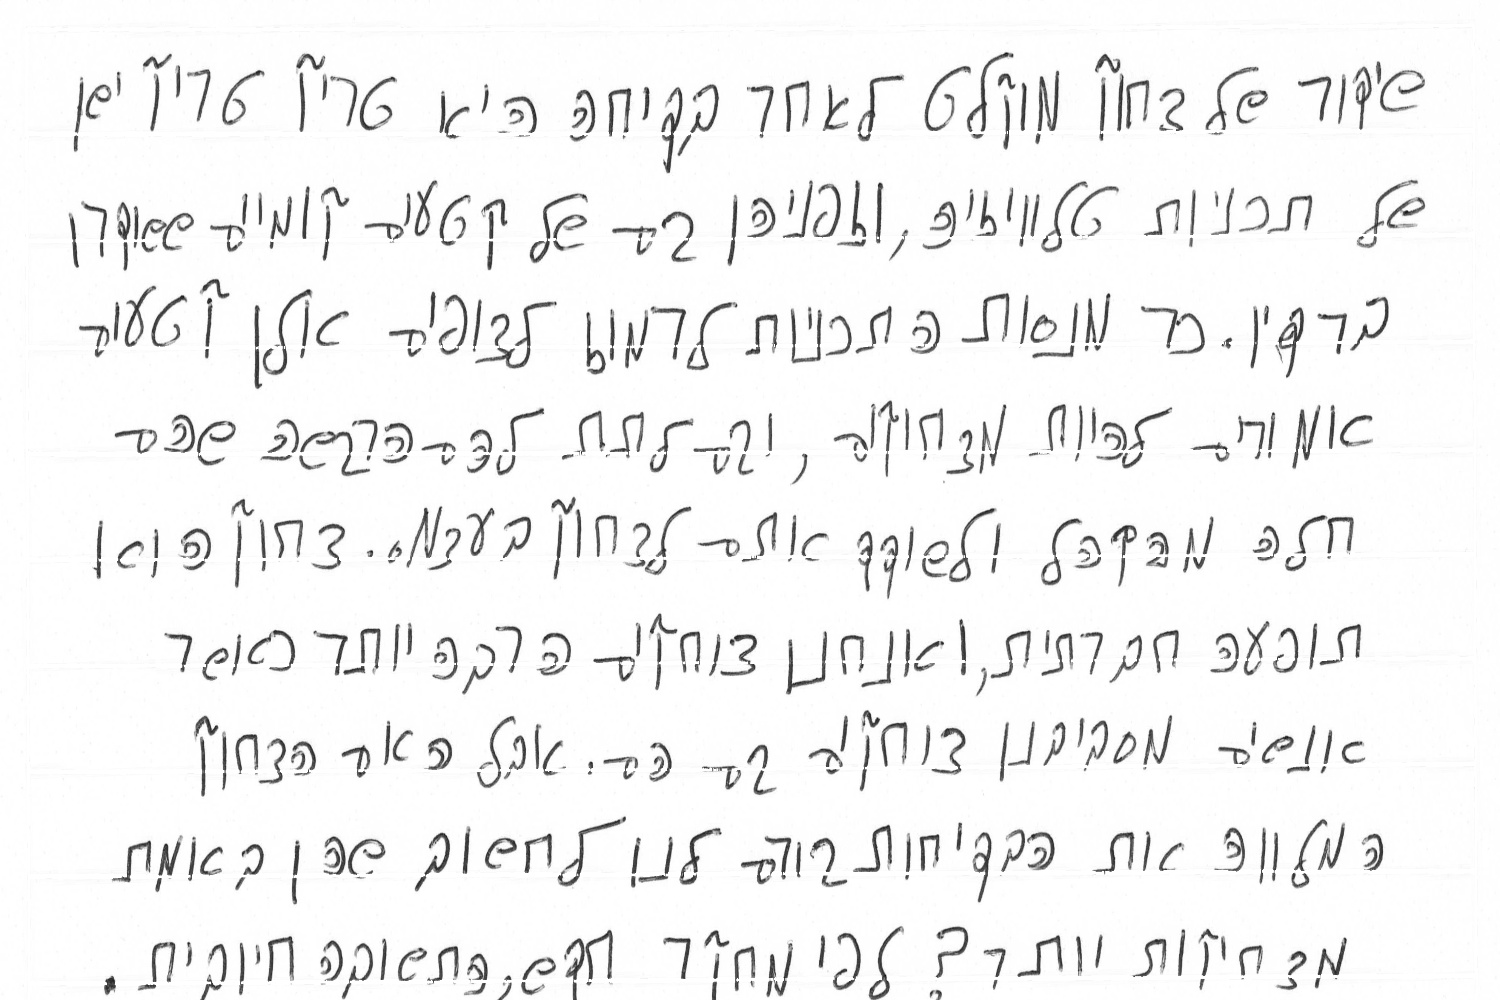 שיקוד של צחוק מוקלט לאחר בדיחה היא טריק טריק ישן
של תכניות טלוויזיה, ובפניהן גם של קטעים קומיים ששודרו
ברדיו. כך מנסות התכניות לרמוז לצופים אילו קטעים
אמורים להיות מצחיקים, וגם לתת להם הרגשה שהם
חלק מהקהל ולשדך אותם לצחוק בעצמם. צחוק הוא
תופעה חברתית, ואנחנו צוחקים הרבה יותר כאשר
אנשים מסביבנו צוחקים גם הם. אבל האם הצחוק
המלווה את הבדיחות גורם לנו לחשוב שהן באמת
מצחיקות יותר? לפי מחקר חדש, התשובה חיובית.